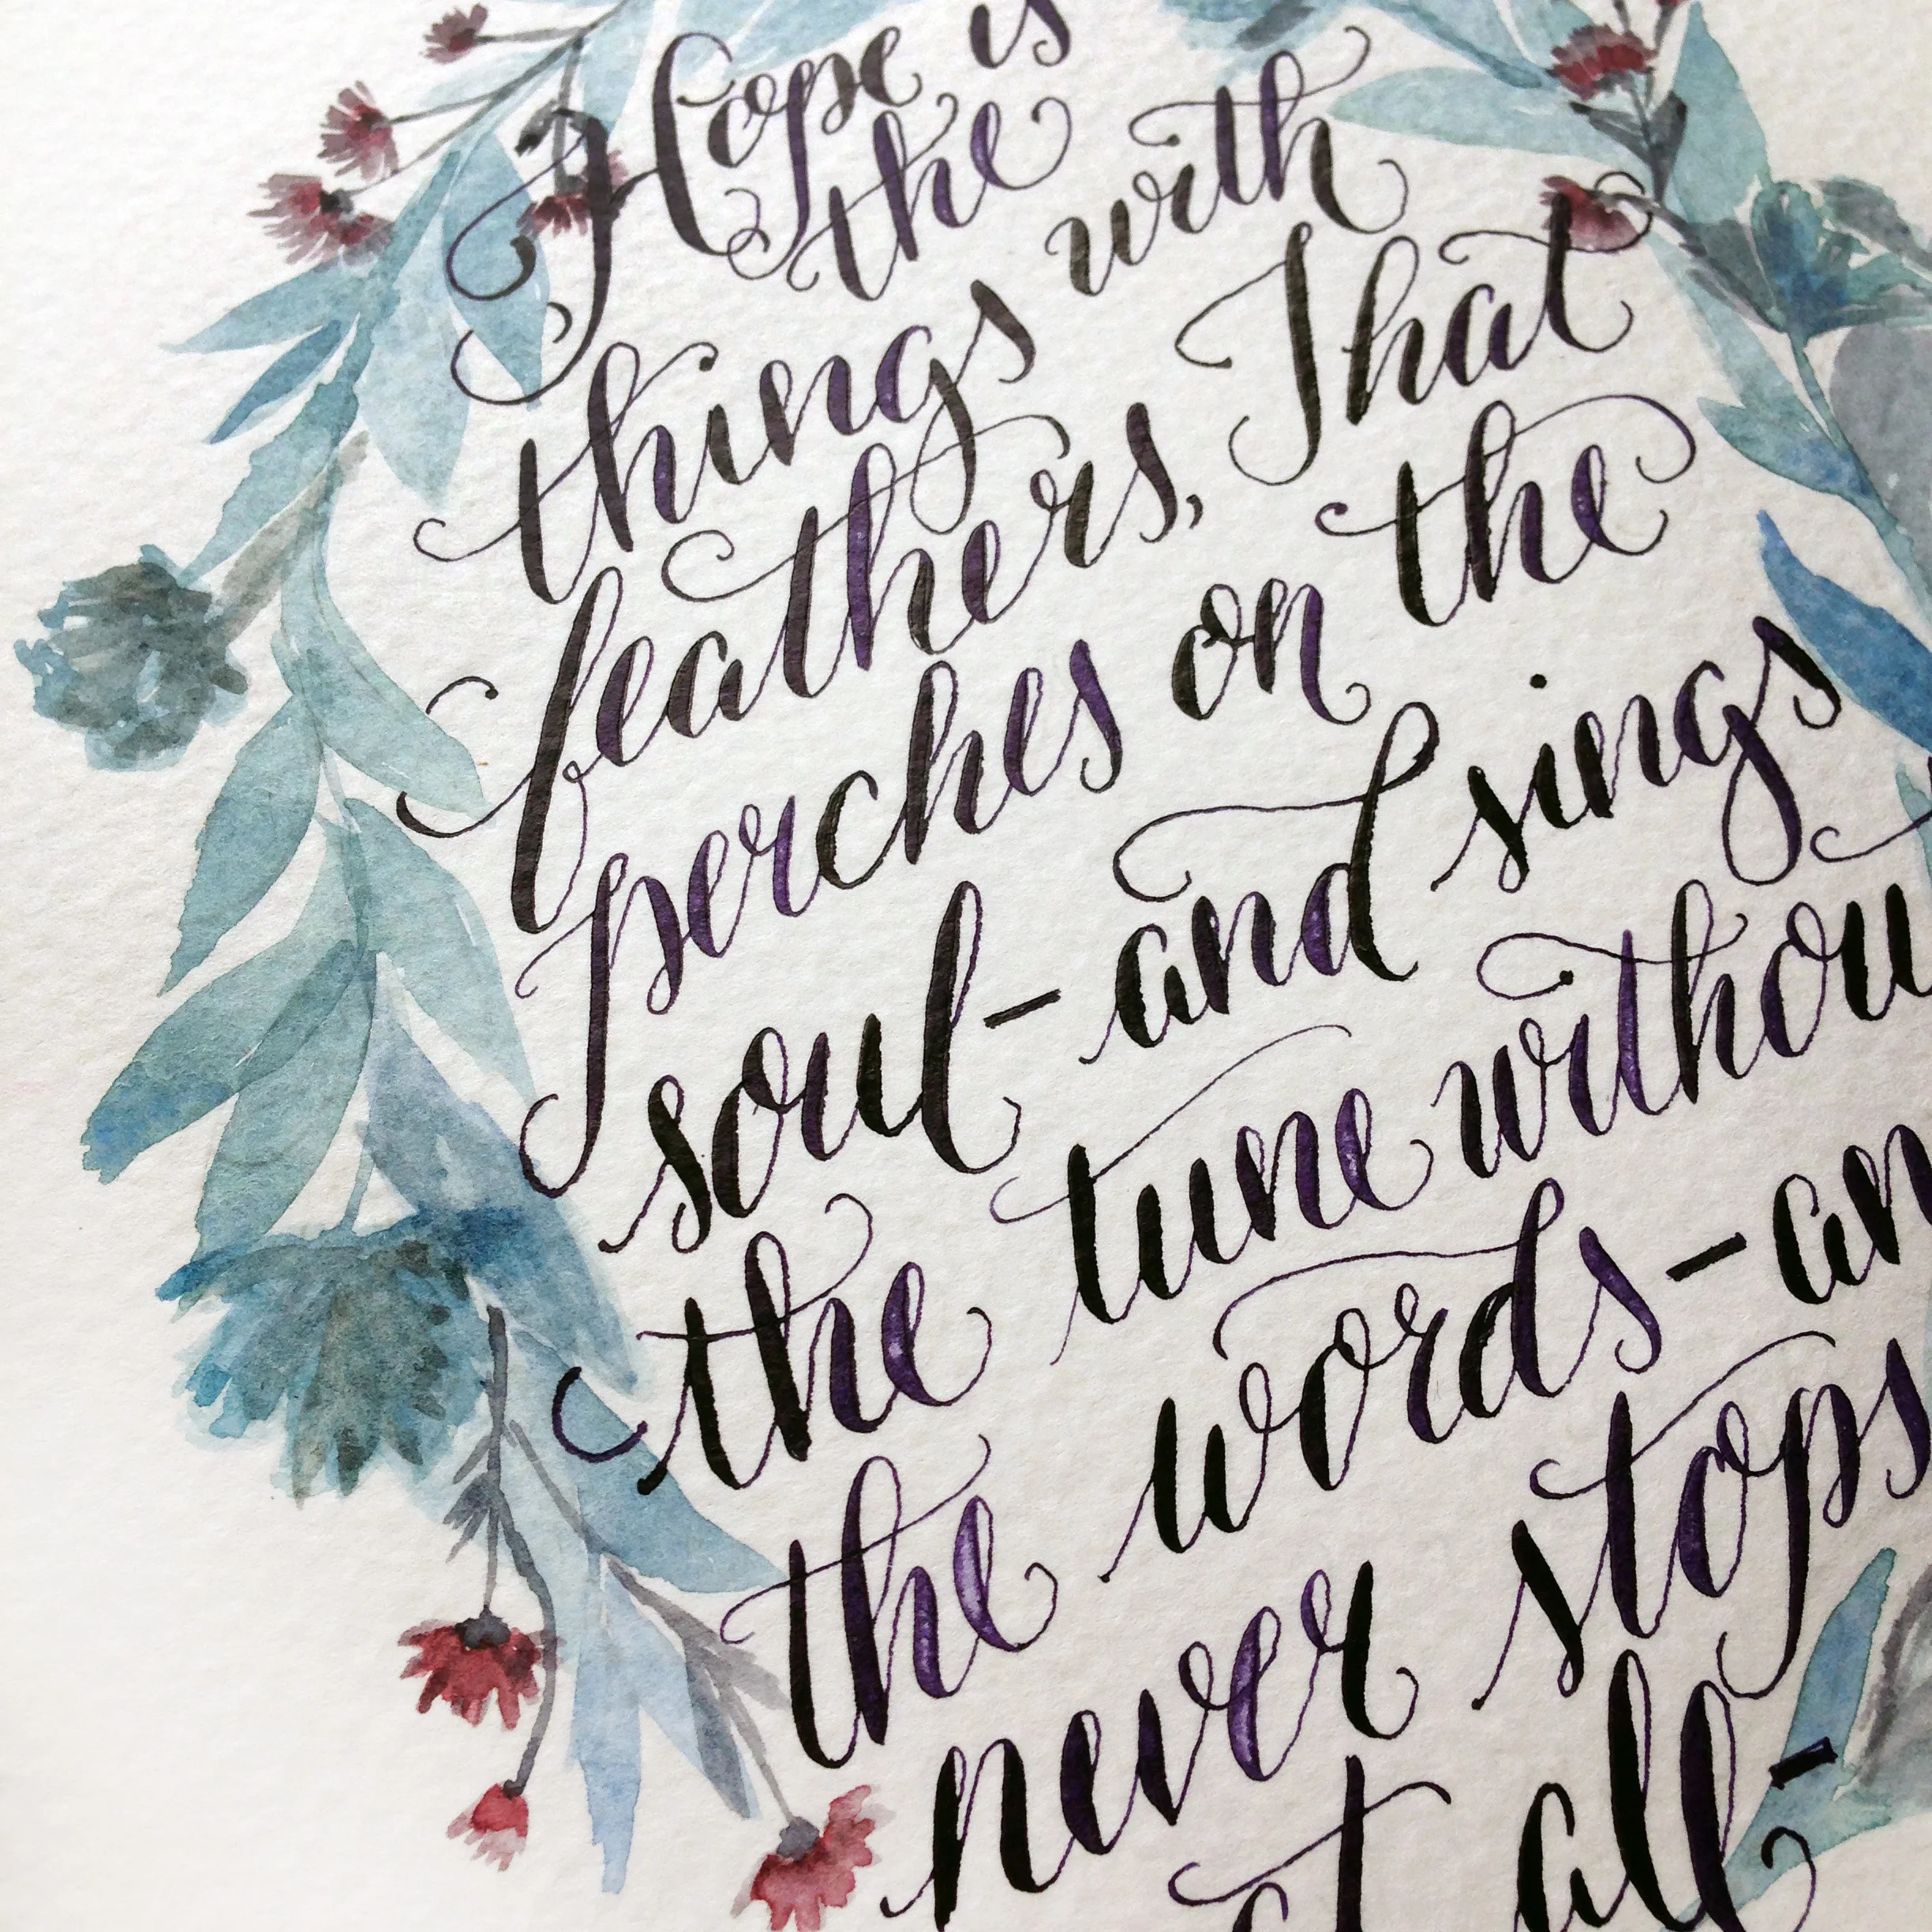 Hope is
the
things with
feathers, That
perches on the
soul - and sings
the tune withou
the words - an
the
never stops
at all -